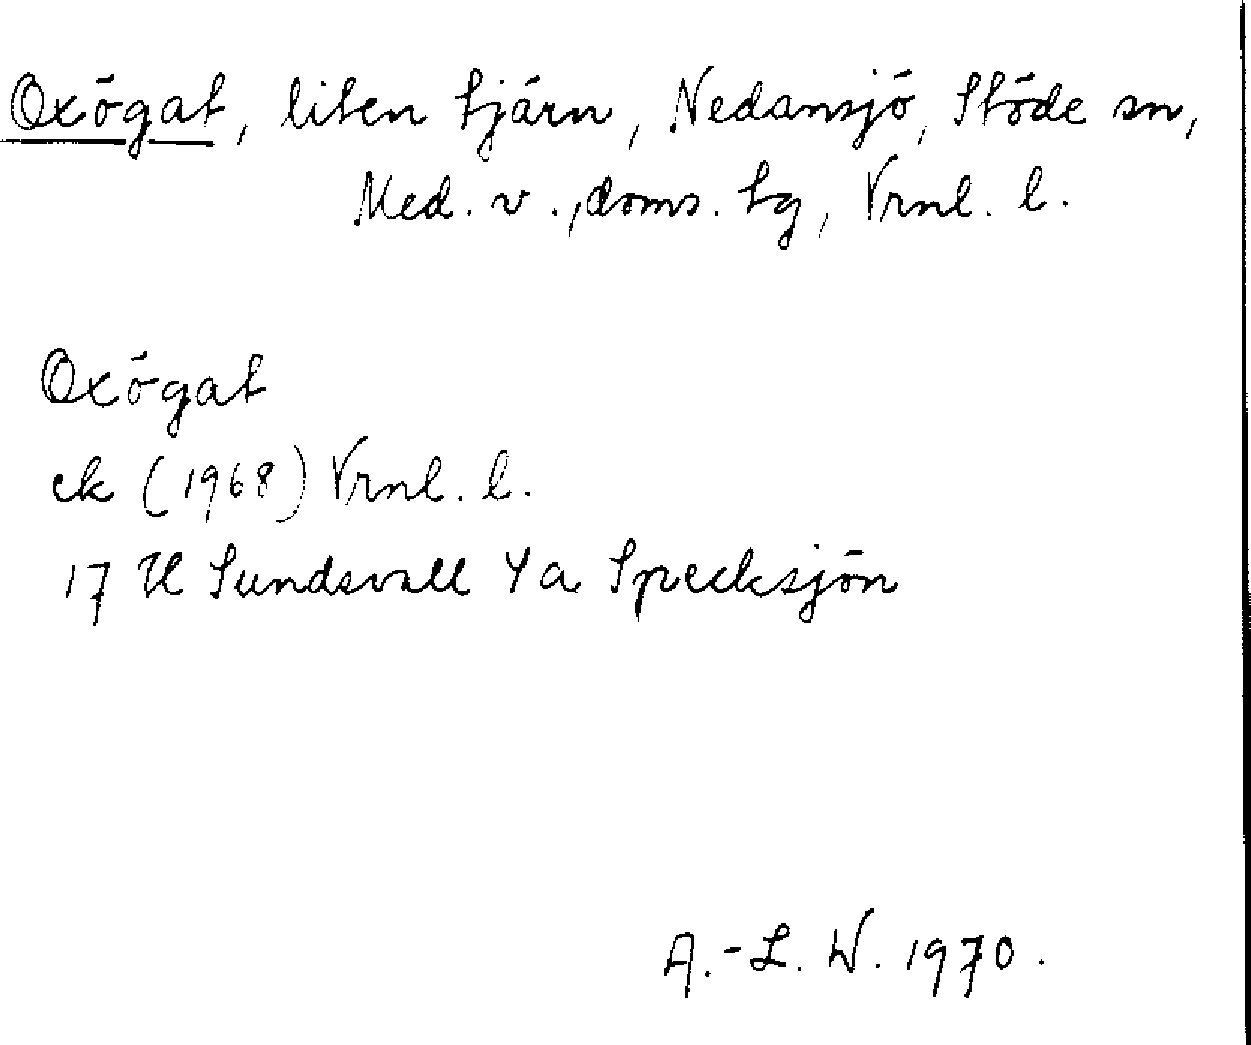 Oxögat, liten tjärn, Nedansjö, Stöde sn,
Med. v., doms. tg, Vrnl. l.
Oxögat
ek (1968) Vrnl. l.
17 H Sundsvall 4 a Specksjön
A.-L. W. 1970.